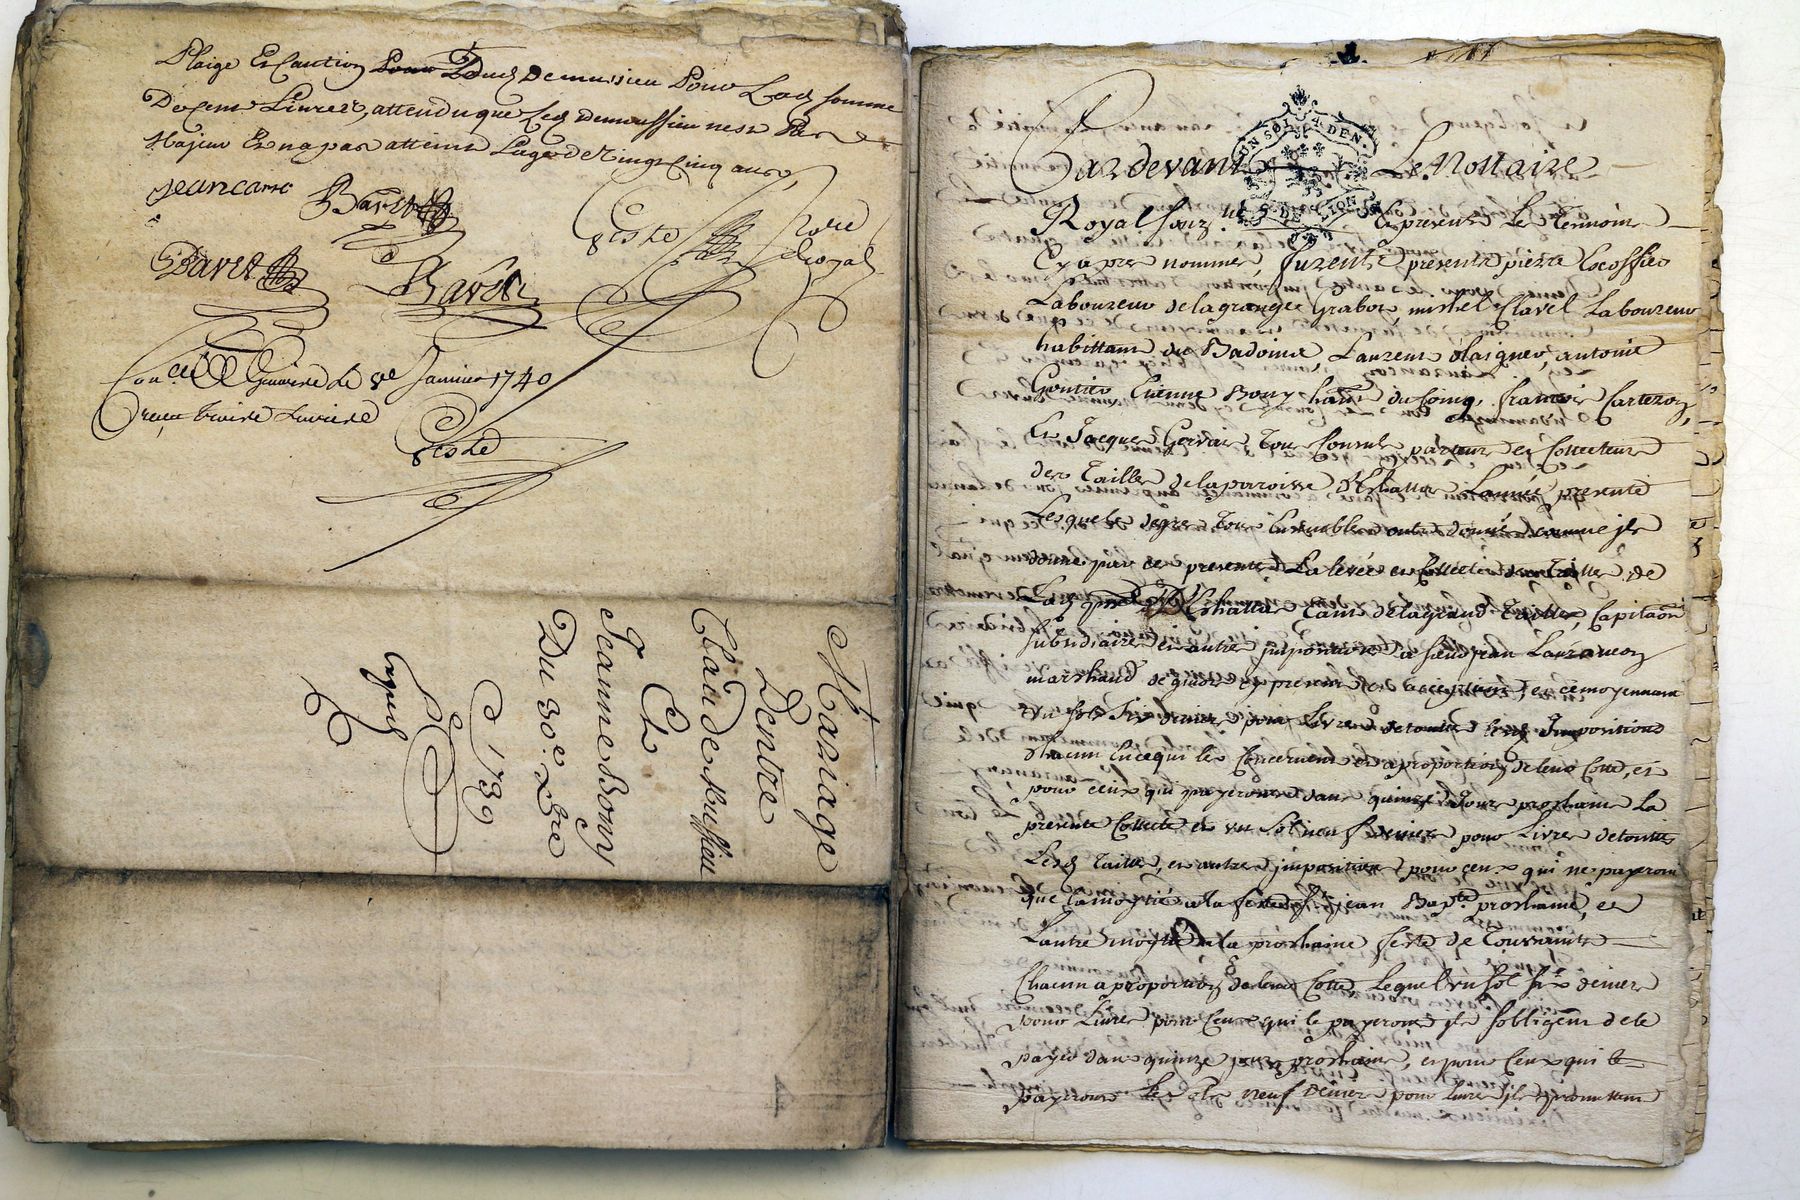 Plaige Et Caution Dud Demussieu Pour Lad somme
De Cent Livres, attendu que Led Demussieu nest Pas
Majeur Et na pas atteint Lage de Vingt Cinq ans,
Jean carre Bavet Teste Notre Royal
Bavet Bavet
Con.lé a Guiaire le 8e Janvier 1740
Receu Treise Livres
Teste
Mariage
Dentre
Claude Mussieu
Et
Jeanne Bony
Du 30e Xbre
1739
expedié
UN SOL 4 DEN.
G. DE LION
Pardevant Le Nottaire
Royal souz.né Et present Les Temoins
Cy apres nommés, furent present pierre Escossier
Laboureur de lagrange Grabot, michel Clavel Laboureur
habittant du Badoine Laurent Alaigner, antoine
Goutier Etienne Bony hant du Coing, francois Cartezon,
Et Jacques Gervais Tous Consuls parteurs et Collecteurs
des Tailles de la paroisse d'Echallas Lannée presente
Lesquels de gre Tous Ensemble ont donné comme ils
donne par ces presentes La levée et Collecte des Tailles de
Lad parsse D'Echallas Tant de la grand Taille, Capitaon
subsidiaire et autres impositions a sieur jean Lauranson
marchand de givors cy present et acceptant, et ce moyennant
un sols six deniers pour Livre de toutes lesd Impositions
chacun En ce qui les Concernent et a proportion de leur Cotte, et
pour ceux qui payeront dans quinze Jours prochains La
presente Collecte et un sol neuf deniers pour Livre de toutes
Lesd Tailles, et autres impositions pour ceux qui ne payeront
que La moytié a la feste de st jean Bapte prochaine, et
Lautre moytié a la prochaine feste de Toussaints
Chacun a proportion de leur Cotte Lequel un sol six deniers
pour Livre pour Ceux qui le payeront ils sobligent de le
payer dans quinze jours prochains, et pour Ceux qui le
payeront neuf deniers pour livre ils promettent